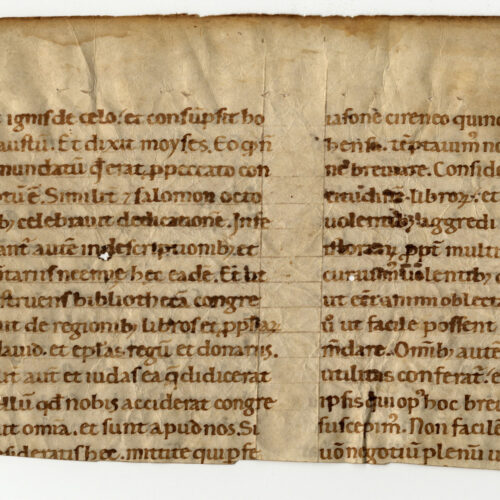 ignis de celo. et consūpsit ho
austū. Et dixit moyses. Eo qđ ñ
mundatū qđ erat, ꝓ peccato con
tū ē. Similit ⁊ salomon octo
celebravit dedicatione. Infe
ant aute in descriptionibꝫ et
itariis neemie hec eade. Et ut
struens bibliothecā congre
uit de regionibꝫ libros et ꝓphar
david. et eplas regū et donariis.
lit aut et iudas ea q̄ didicerat
ellū qđ nobis acciderat congre
uit omia. et sunt apud nos. Si
sideratis hec. mittite qui pfe
iasone cireneo quinq
hensa. tēptavimꝰ no
ne breviare. Conside
titudinē librorꝫ. et
volentibꝫ aggredi
storiarꝫ. ꝓpt multi
curavimꝰ volentibꝫ
ut eēt animi oblect
ut facile possent
mdare. Omibꝫ aute
utilitas conferat. e
ipsis qui opꝰ hoc brev
suscepimꝰ. Non facile
vō negotiū plenū u